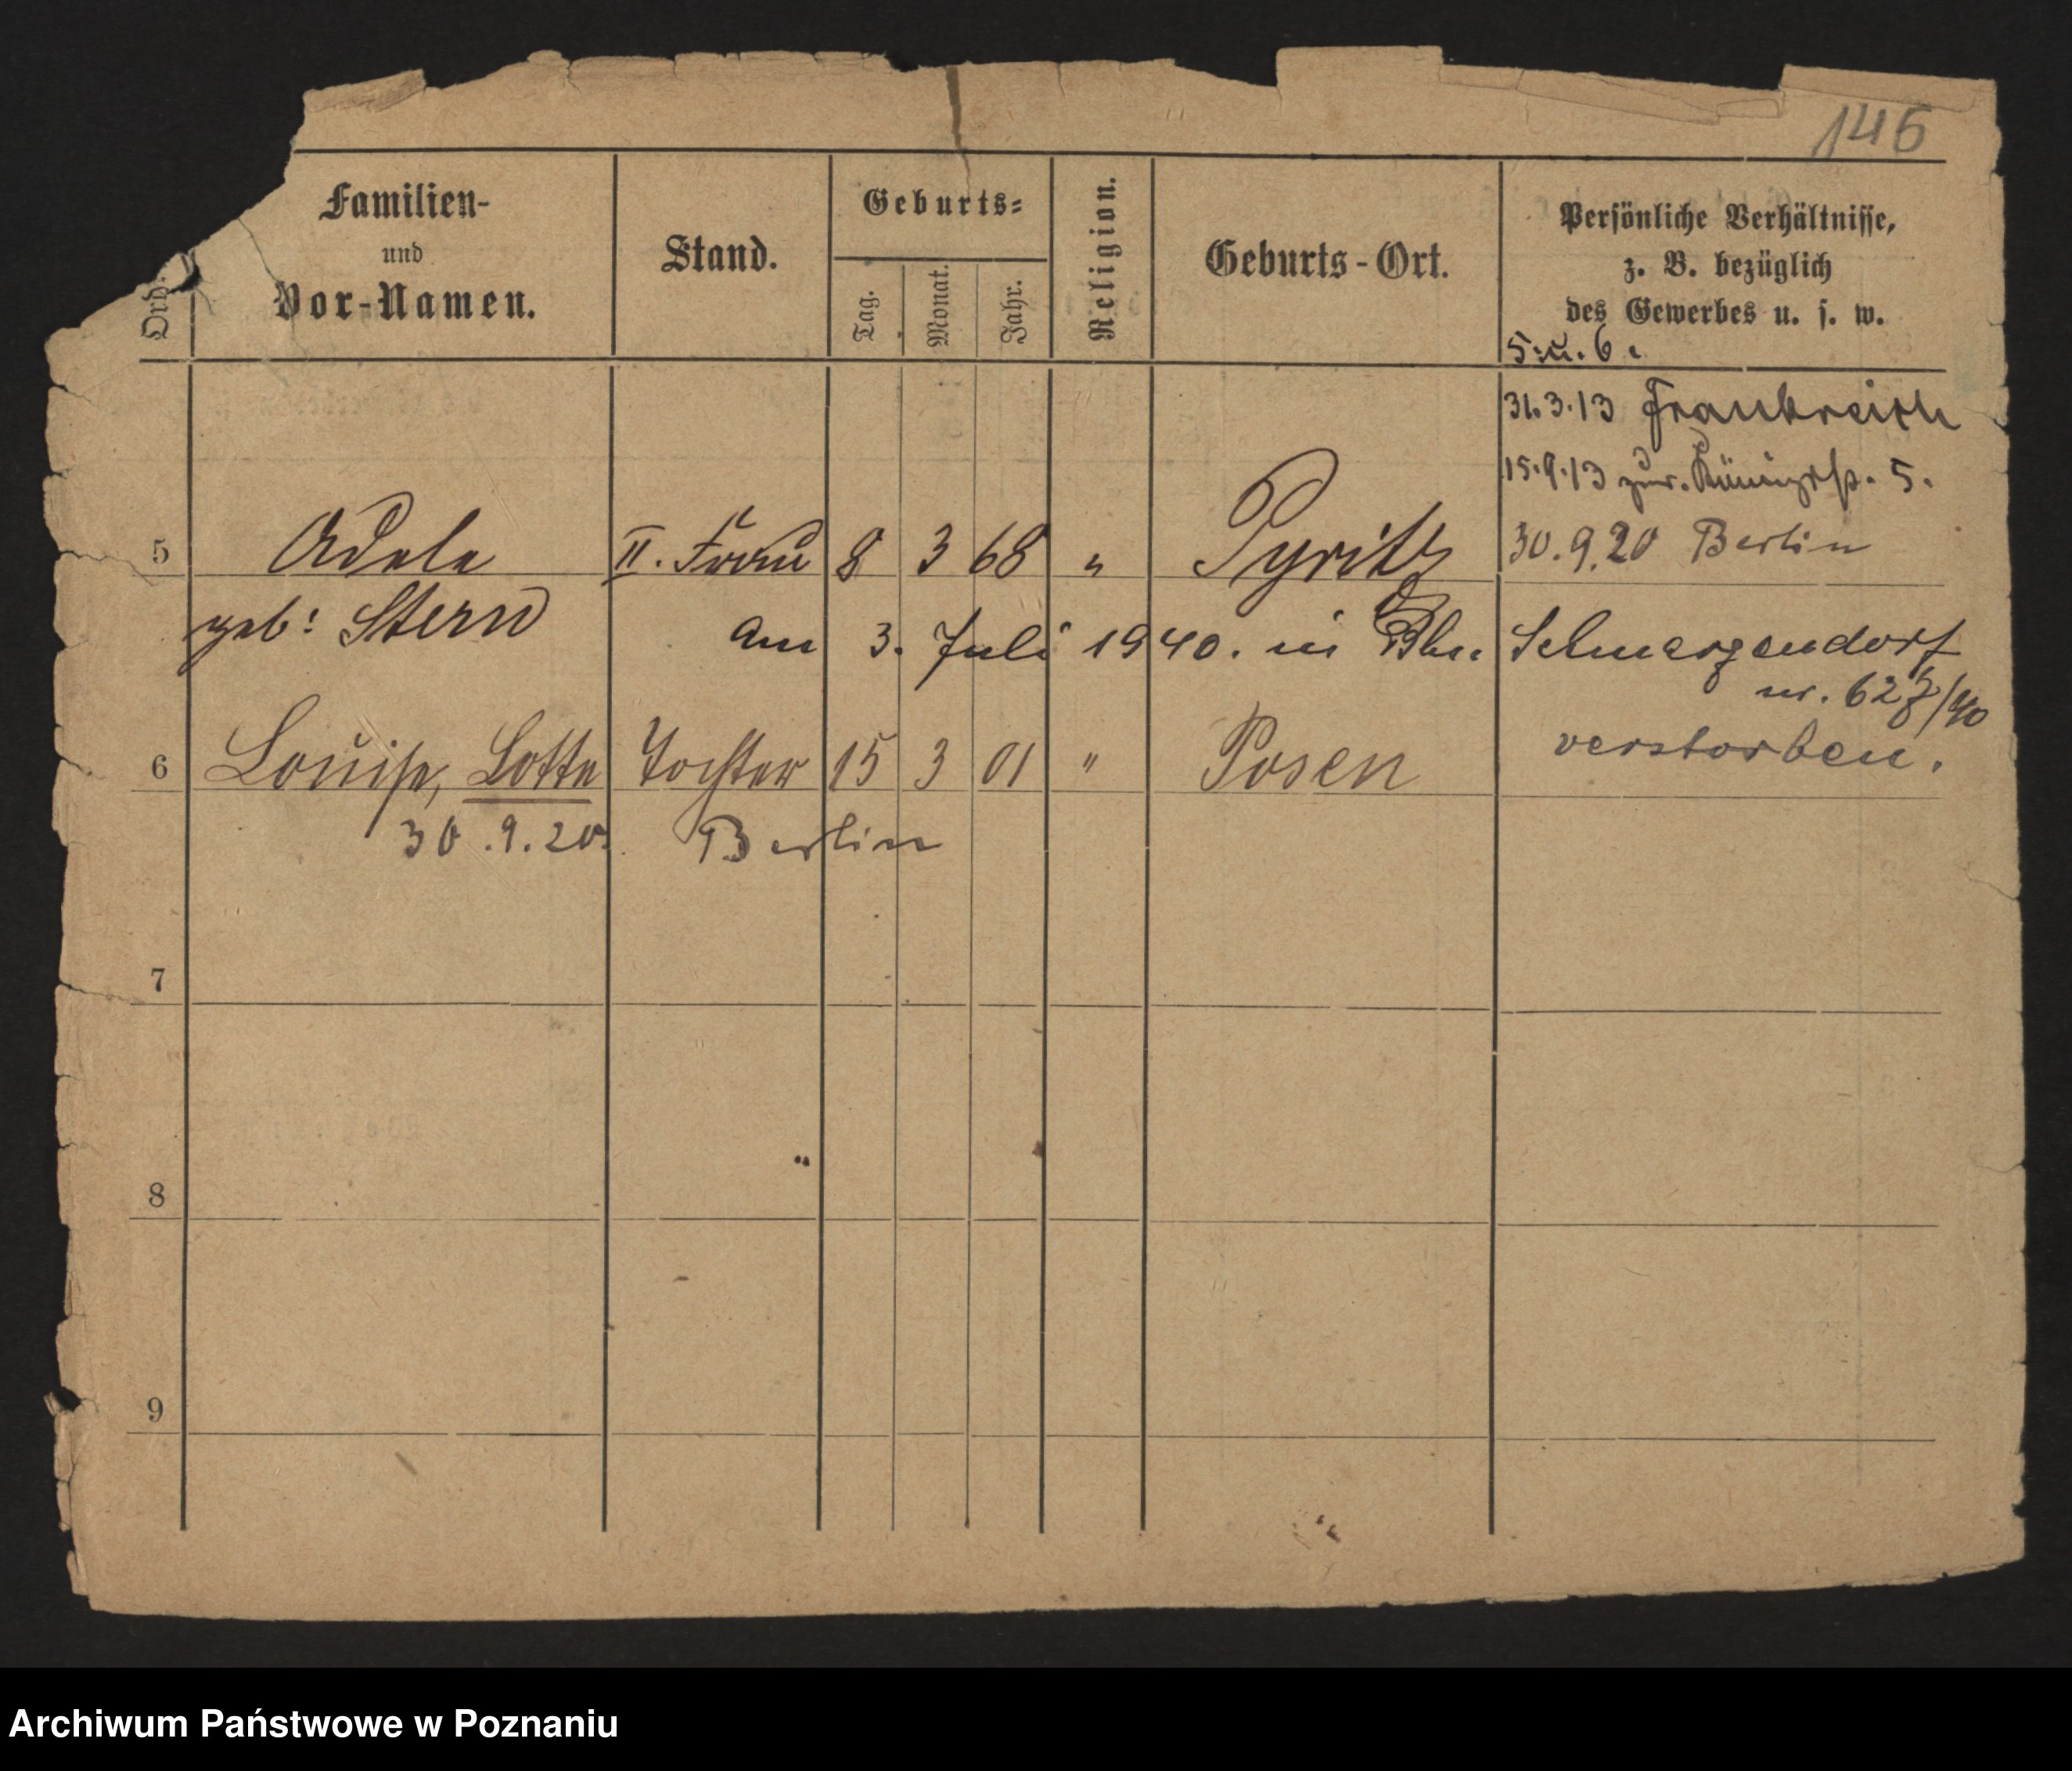 146
Familien-
und
Vor-Namen.
Stand.
Geburts-
Tag.
Monat.
Jahr.
Religion.
Geburts-Ort.
Persönliche Verhältnisse,
z. B. bezüglich
des Gewerbes u. s. w.
Ord.
5. u. 6.
31.3.13 Frankreich
15.9.13 zur. 5.
5 Adele II. Frau 8 3 68 " Pyritz 30.9.20 Berlin
geb: Stern am 3. Juli 1940. in Bln. Schmargendorf
nr. 627/40
verstorben.
6 Louise, Lotte Tochter 15 3 01 " Posen
30.9.20 Berlin
7
8
9
Archiwum Państwowe w Poznaniu